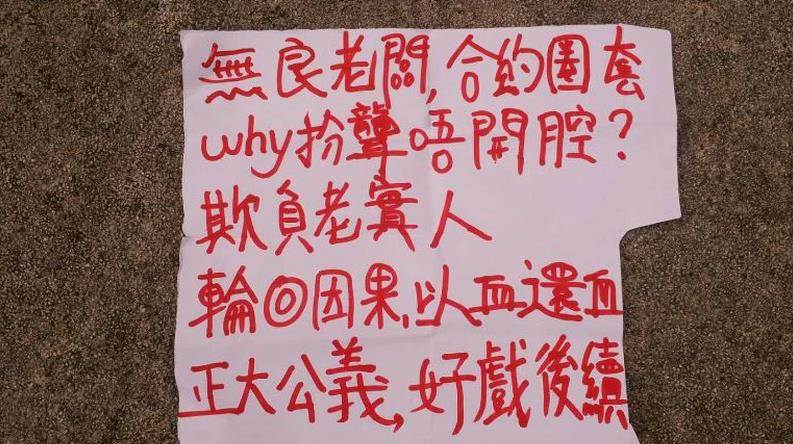 無良老闆,合約圈套
why扮聾唔開腔?
欺負老實人
輪回因果,以血還血
正大公義,好戲後續